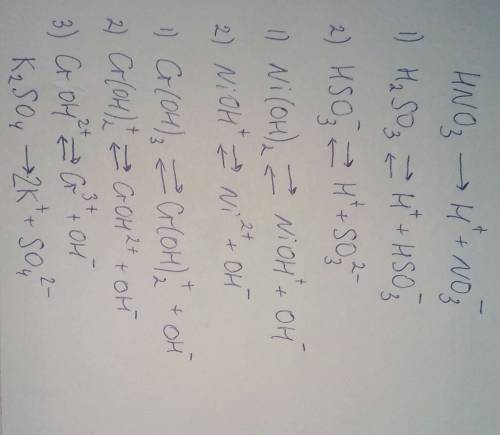 HNO₃ → H⁺ + NO₃⁻
1) H₂SO₃ ⇄ H⁺ + HSO₃⁻
2) HSO₃⁻ ⇄ H⁺ + SO₃²⁻
1) Ni(OH)₂ ⇄ NiOH⁺ + OH⁻
2) NiOH⁺ ⇄ Ni²⁺ + OH⁻
1) Cr(OH)₃ ⇄ Cr(OH)₂⁺ + OH⁻
2) Cr(OH)₂⁺ ⇄ CrOH²⁺ + OH⁻
3) CrOH²⁺ ⇄ Cr³⁺ + OH⁻
K₂SO₄ → 2K⁺ + SO₄²⁻